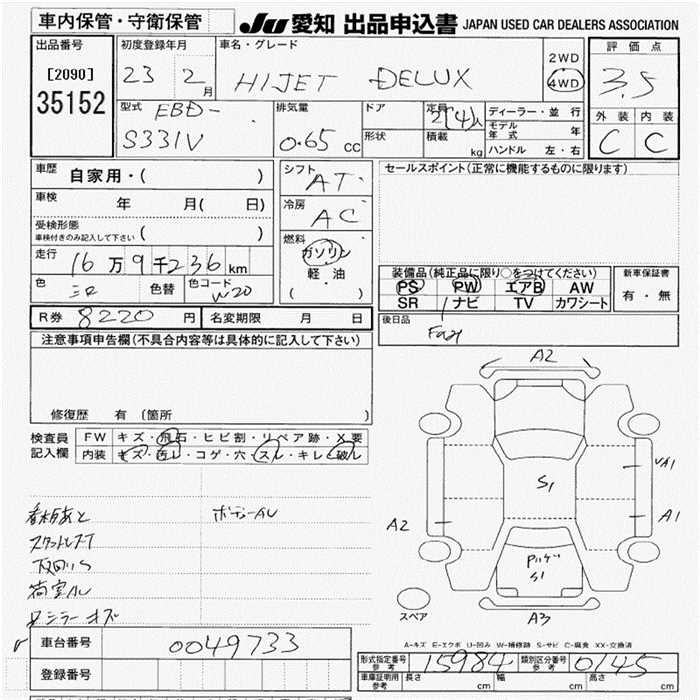 車内保管・守衛保管
JU 愛知 出品申込書 JAPAN USED CAR DEALERS ASSOCIATION
出品番号
[2090]
35152
初度登録年月
23 2月
車名・グレード
HIJET DELUX
2WD
4WD
評価点
3.5
外装 内装
C C
型式 EBD-
S331V
排気量
0.65 cc
ドア
形状
定員 2(4)人
積載 kg
ディーラー・並行
モデル年式 年
ハンドル 左・右
車歴 自家用・( )
車検 年 月( 日)
受検形態
車検付きのみ記入して下さい ( )
走行 16万9千236km
色 色替 色コード W20
シフト AT
冷房 AC
燃料
ガソリン
軽・油
( )
セールスポイント(正常に機能するものに限ります)
装備品(純正品に限り○をつけてください)
PS PW エアB AW
SR ナビ TV カワシート
新車保証書
有・無
後日品
R券 8220円 名変期限 月 日
注意事項申告欄(不具合内容等は具体的に記入して下さい)
修復歴 有(箇所 )
検査員記入欄
FW キズ・飛石・ヒビ割・リペア跡・X要
内装 キズ・汚レ・コゲ・穴・スレ・キレ・破レ
荷室AU
ボデーAU
A2
S1
VA1
A2
A1
S1
A3
スペア
A-キズ E-エクボ U-凹み W-補修跡 S-サビ C-腐食 XX-交換済
車台番号 0049733
登録番号
形式指定番号 参考 15984 類別区分番号 参考 0145
車庫証明用 参考 長さ cm 幅 cm 高さ cm